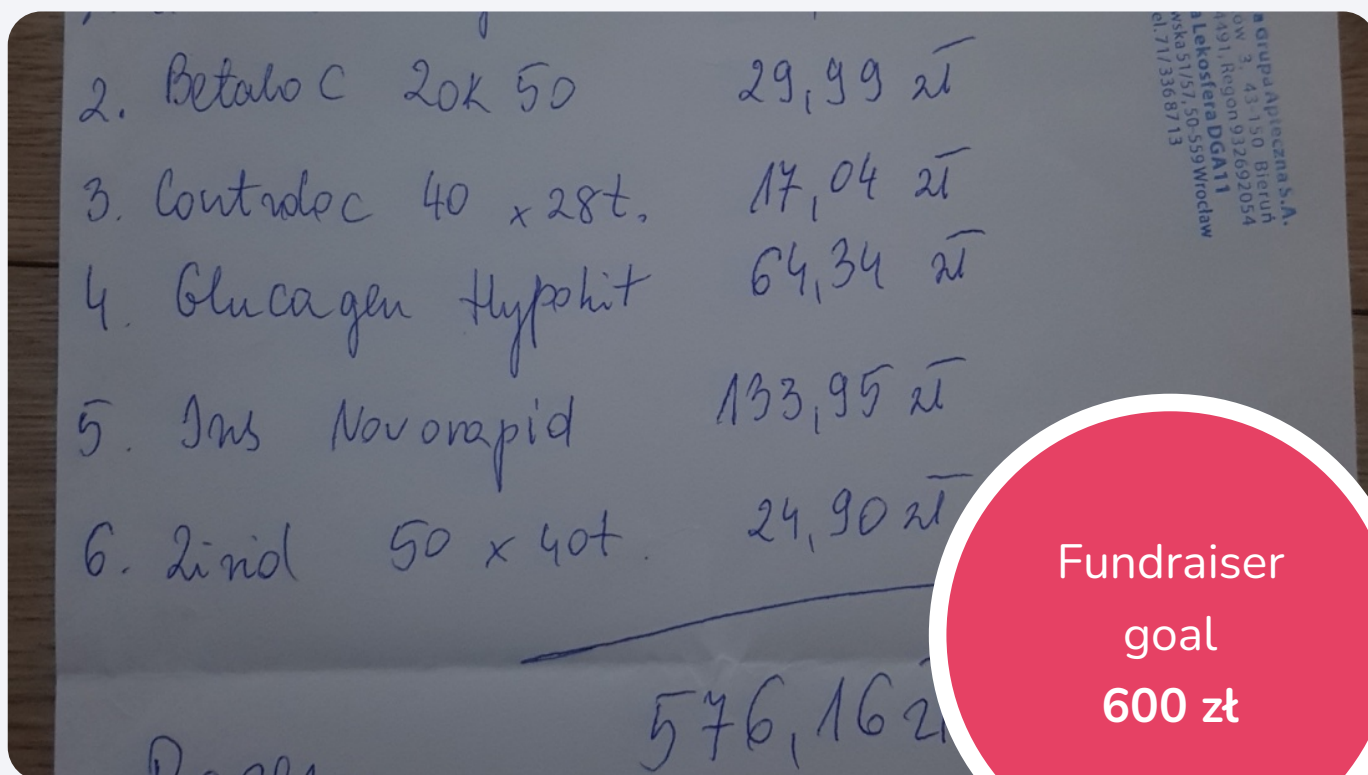 2. Betaloc ZOK 50 29,99 zł
3. Controloc 40 x 28t. 17,04 zł
4. Glucagen Hypokit 64,34 zł
5. Ins Novorapid 133,95 zł
6. 50 x 40t. 24,90 zł
576,16 zł
a Grupa Apteczna S.A.
ów 3, 43-150 Bieruń
4491, Regon 932692054
a Lekosfera DGA11
wska 51/57, 50-559 Wrocław
el. 71/336 87 13
Fundraiser
goal
600 zł